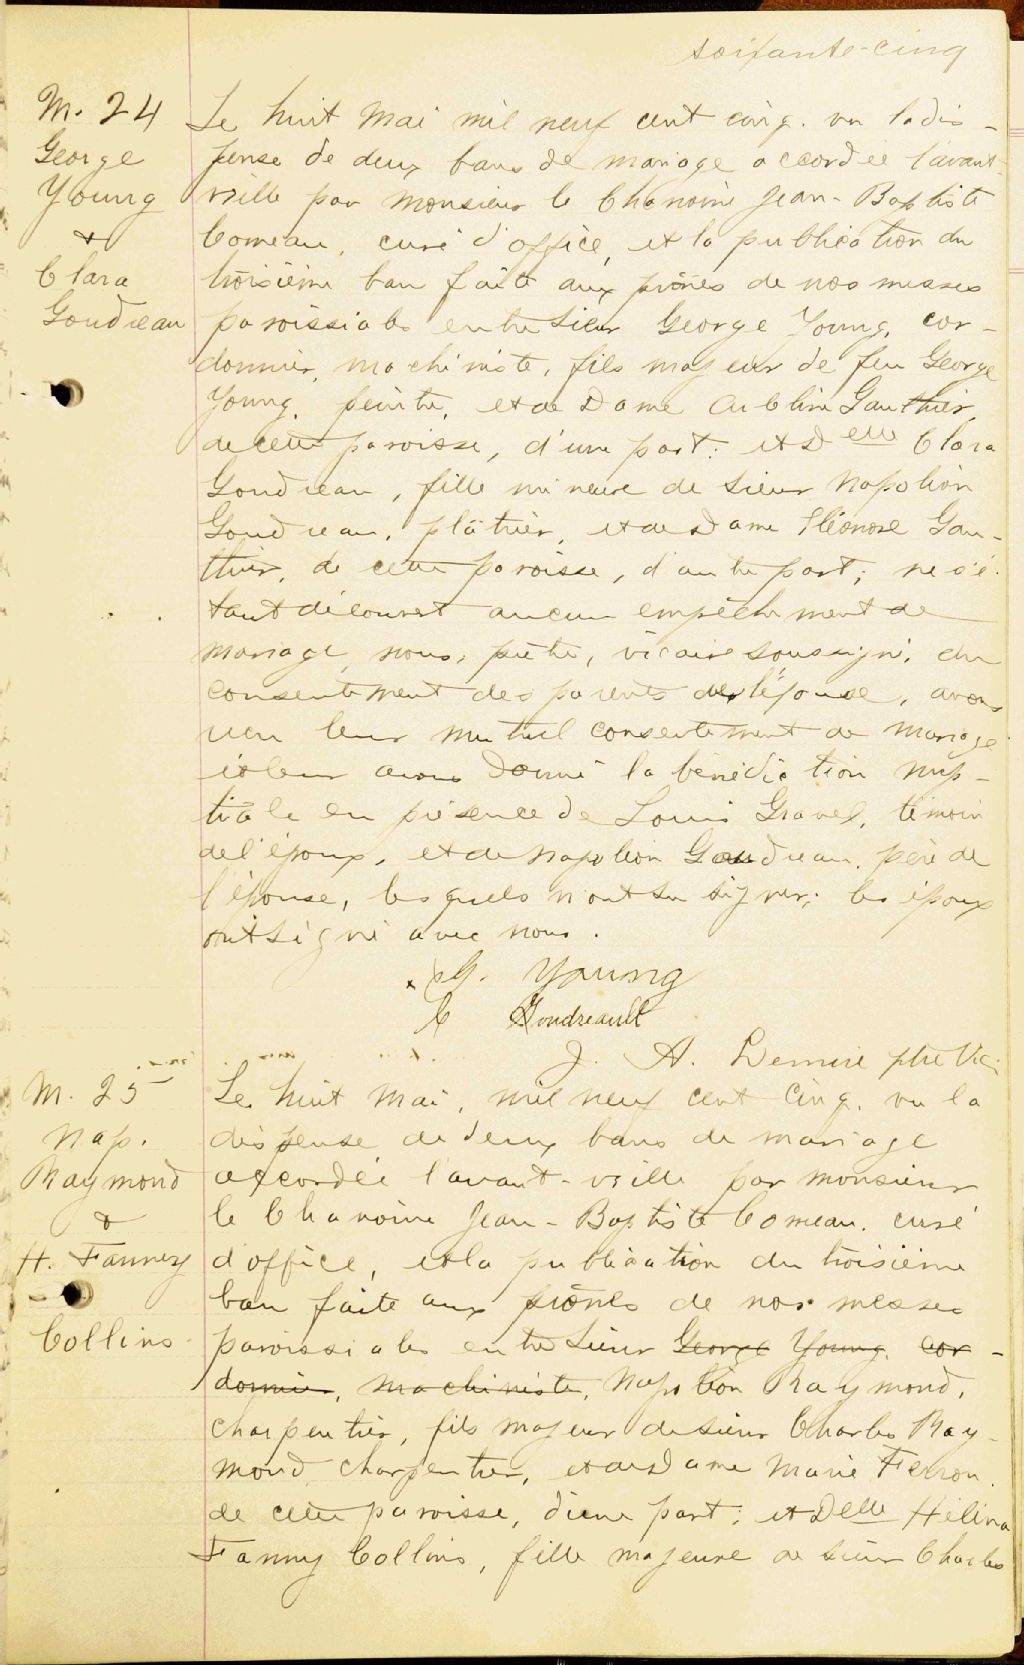 soixante-cinq
M. 24
George
Young
&
Clara
Goudreau
Le huit Mai mil neuf cent cinq. vu la dis-
pense de deux bans de mariage accordée l'avant-
veille par Monsieur le Chanoine Jean-Baptiste
Comeau, curé d'office, et la publication du
troisième ban faite aux prônes de nos messes
paroissiales entre Sieur George Young, cor-
donnier, machiniste, fils majeur de feu George
Young, peintre, et de Dame Gauthier,
de cette paroisse, d'une part; et Delle Clara
Goudreau, fille mineure de Sieur Napoléon
Goudreau, plâtrier, et de Dame Eléonore Gau-
thier, de cette paroisse, d'autre part; ne s'é-
tant découvert aucun empêchement de
mariage, nous, prêtre, vicaire soussigné, du
consentement des parents de l'épouse, avons
reçu leur mutuel consentement de mariage
et leur avons donné la bénédiction nup-
tiale en présence de Louis Gravel, témoin
de l'époux, et de Napoléon Goudreau, père de
l'épouse, lesquels n'ont su signer; les époux
ont signé avec nous.
x G. Young
C Goudreault
J. A. Lemire ptre Vic.
M. 25
Nap.
Raymond
&
H. Fanney
Collins
Le huit Mai, mil neuf cent cinq. vu la
dispense de deux bans de mariage
accordée l'avant-veille par monsieur
le Chanoine Jean-Baptiste Comeau, curé
d'office, et la publication du troisième
ban faite aux prônes de nos messes
paroissiales entre Sieur George Young, cor-
donnier, machiniste, Napoléon Raymond,
charpentier, fils majeur de sieur Charles Ray-
mond, charpentier, et de Dame Marie Ferron,
de cette paroisse, d'une part; et Delle Hélina
Fanny Collins, fille majeure de sieur Charles